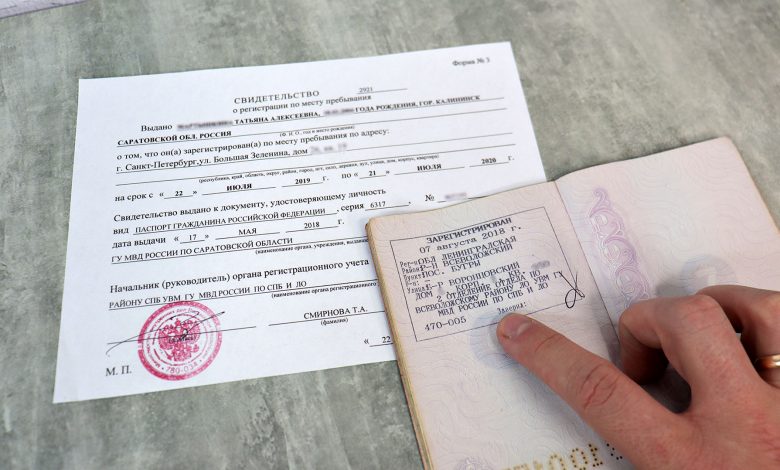 Форма № 3
СВИДЕТЕЛЬСТВО 2921
о регистрации по месту пребывания
Выдано ТАТЬЯНА АЛЕКСЕЕВНА, ГОДА РОЖДЕНИЯ, ГОР. КАЛИНИНСК
САРАТОВСКОЙ ОБЛ. РОССИЯ
(Ф. И. О., год и место рождения)
о том, что он(а) зарегистрирован(а) по месту пребывания по адресу:
г. Санкт-Петербург,ул. Большая Зеленина, дом
(республика, край, область, округ, район, город, пгт, село, деревня, аул, улица, дом, корпус, квартира)
на срок с « 22 » ИЮЛЯ 2019 г. по « 21 » ИЮЛЯ 2020 г.
Свидетельство выдано к документу, удостоверяющему личность
вид ПАСПОРТ ГРАЖДАНИНА РОССИЙСКОЙ ФЕДЕРАЦИИ , серия 6317 , №
дата выдачи « 17 » МАЯ 2018 г.
ГУ МВД РОССИИ ПО САРАТОВСКОЙ ОБЛАСТИ
(наименование органа, учреждения,
Начальник (руководитель) органа регистрационного учета
РАЙОНУ СПБ УВМ ГУ МВД РОССИИ ПО СПБ И ЛО
(наименование органа регистрационного
СМИРНОВА Т.А.
(фамилия)
« 22
М. П.
780-034
ЗАРЕГИСТРИРОВАН
07 августа 2018 г.
Рег-н ОБЛ ЛЕНИНГРАДСКАЯ
Район Р-Н ВСЕВОЛОЖСКИЙ
Пункт ПОС. БУГРЫ
Р-н:
Улица Б-Р ВОРОНЦОВСКИЙ
ДОМ КОРП. КВ.
2 ОТДЕЛЕНИЕ ОТДЕЛА ПО
ВСЕВОЛОЖСКОМУ РАЙОНУ ЛО УВМ ГУ
МВД РОССИИ ПО СПБ И ЛО
470-005 Заверил: